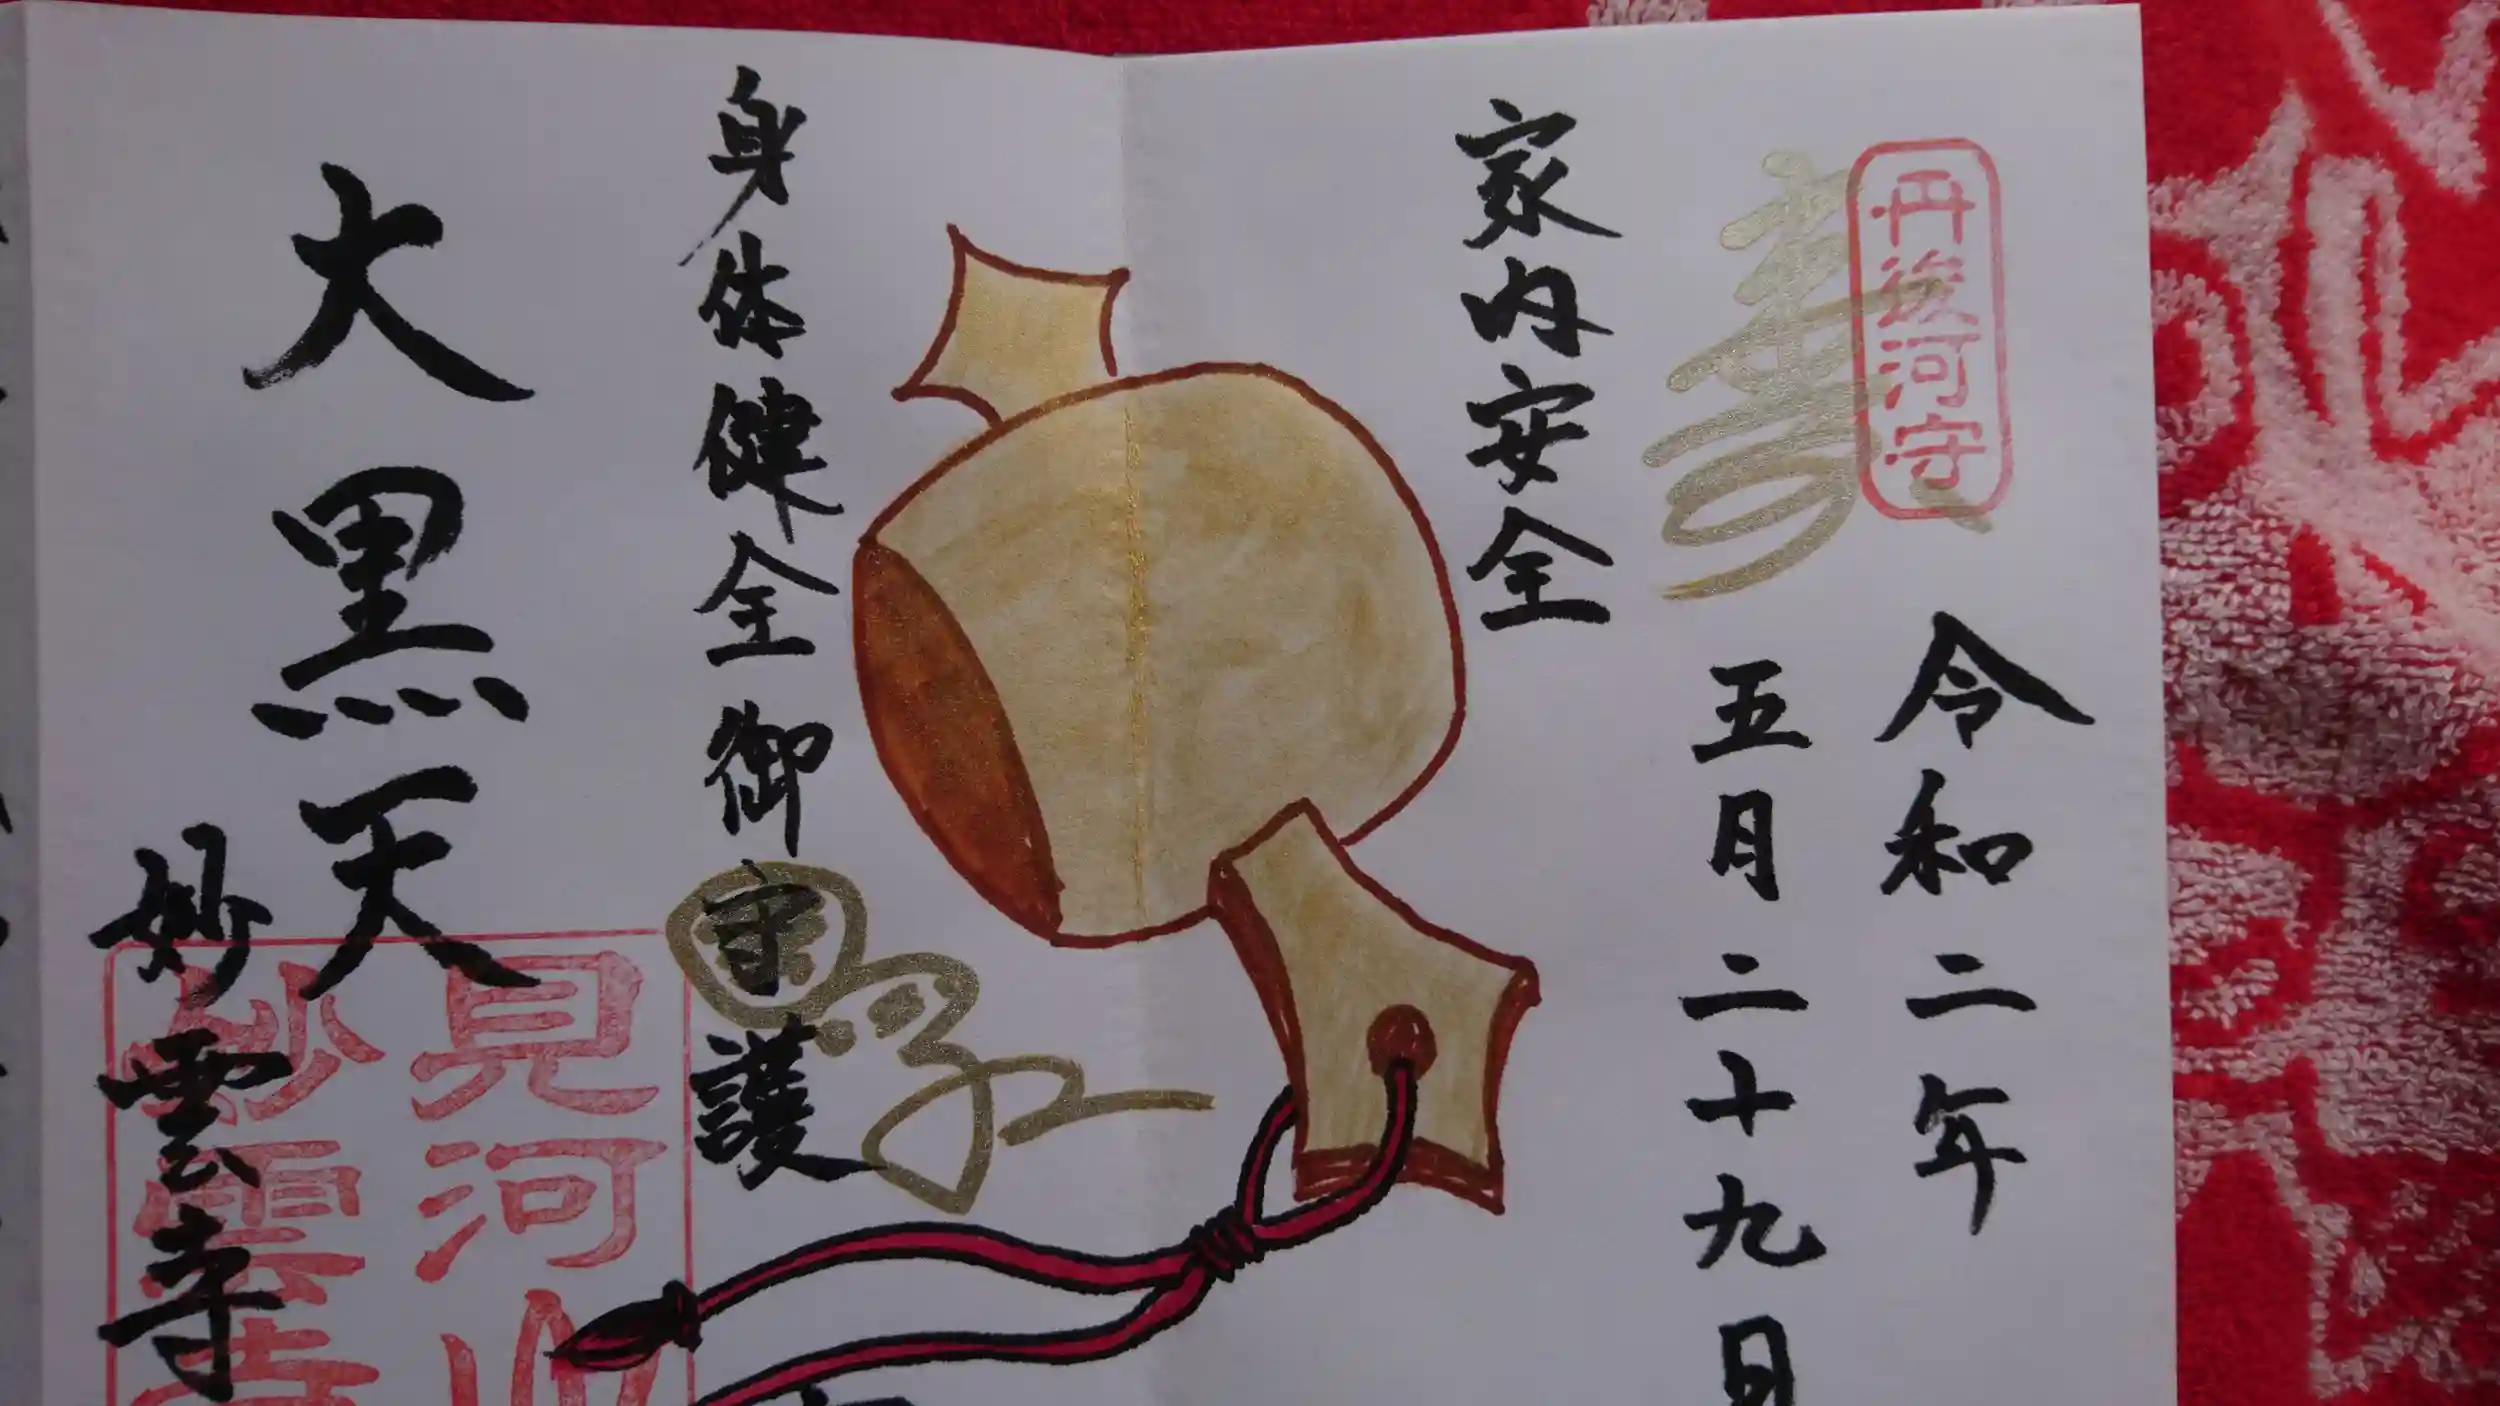 丹後河守
寿
令和二年
五月二十九日
家内安全
身体健全御守護
大黒天
妙雲寺
見河山
妙雲寺